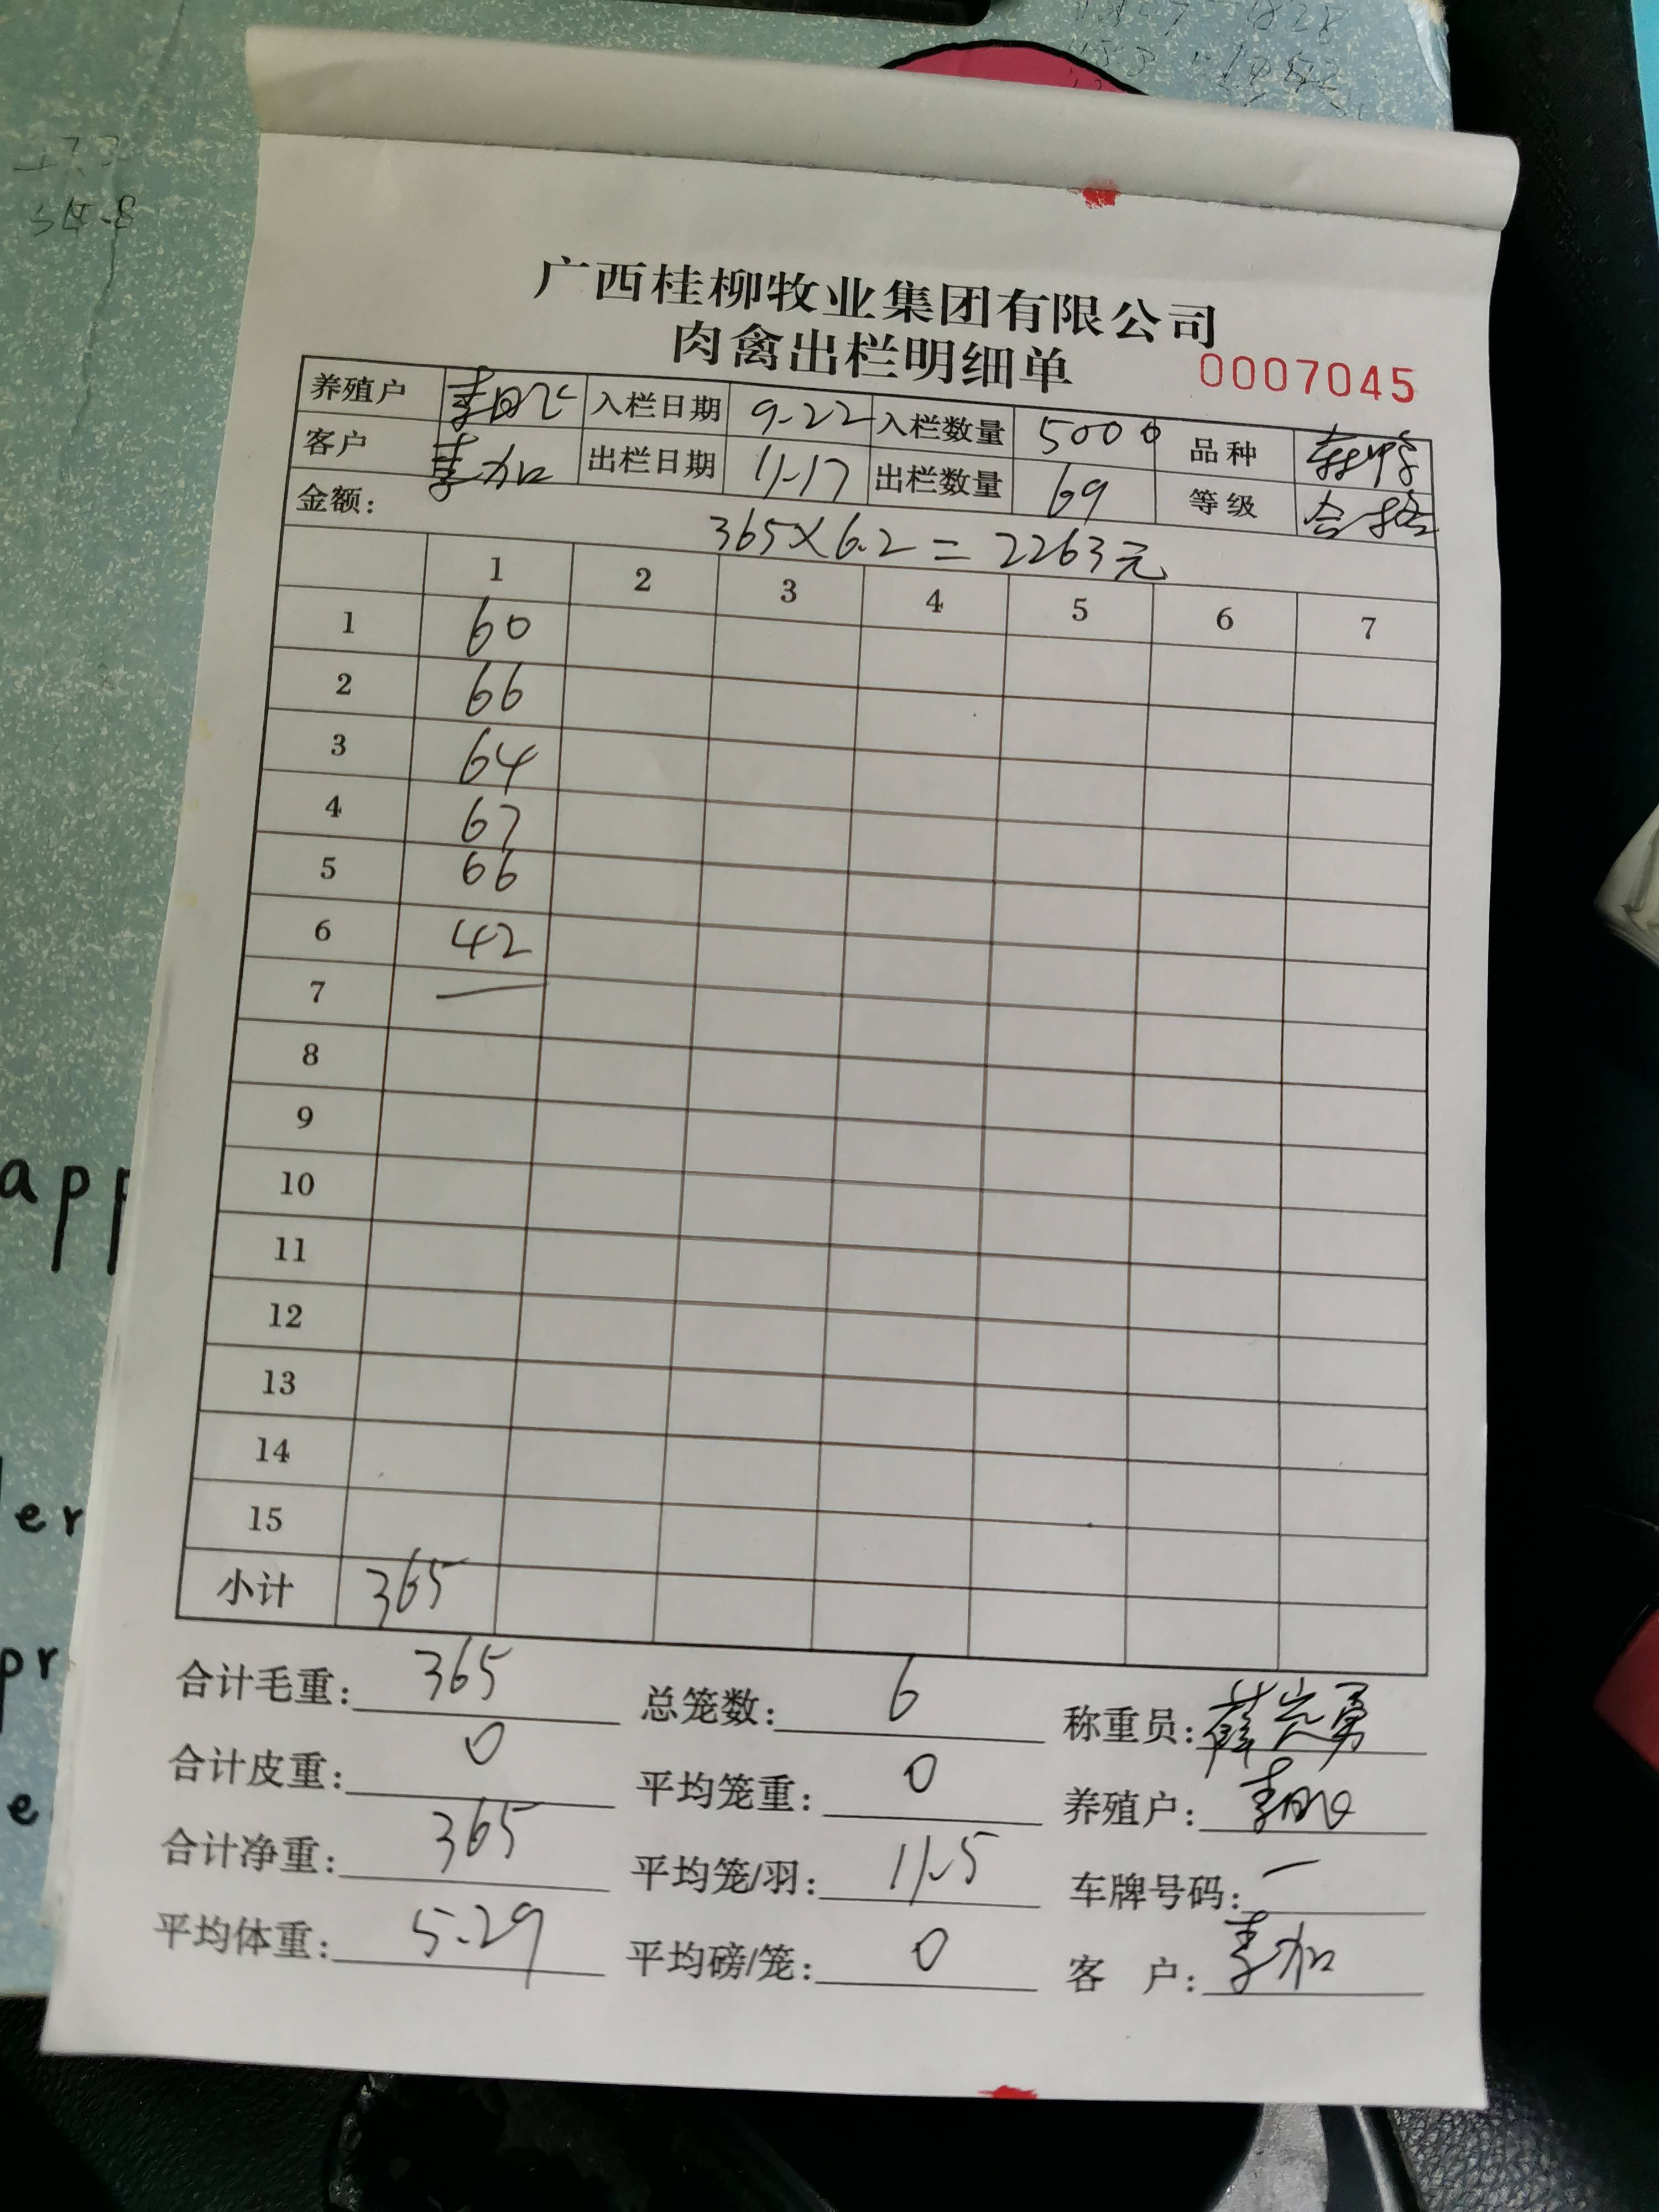 广西桂柳牧业集团有限公司
肉禽出栏明细单 0007045
养殖户 入栏日期 9.22 入栏数量 5000 品种
客户 李加 出栏日期 11.17 出栏数量 69 等级 合格
金额: 365×6.2=2263元
1 2 3 4 5 6 7
1 60
2 66
3 64
4 67
5 66
6 42
7
8
9
10
11
12
13
14
15
小计 365
合计毛重: 365 总笼数: 6 称重员:
合计皮重: 0 平均笼重: 0 养殖户:
合计净重: 365 平均笼/羽: 11.5 车牌号码: 一
平均体重: 5.29 平均磅/笼: 0 客 户: 李加
app
er
pr
e